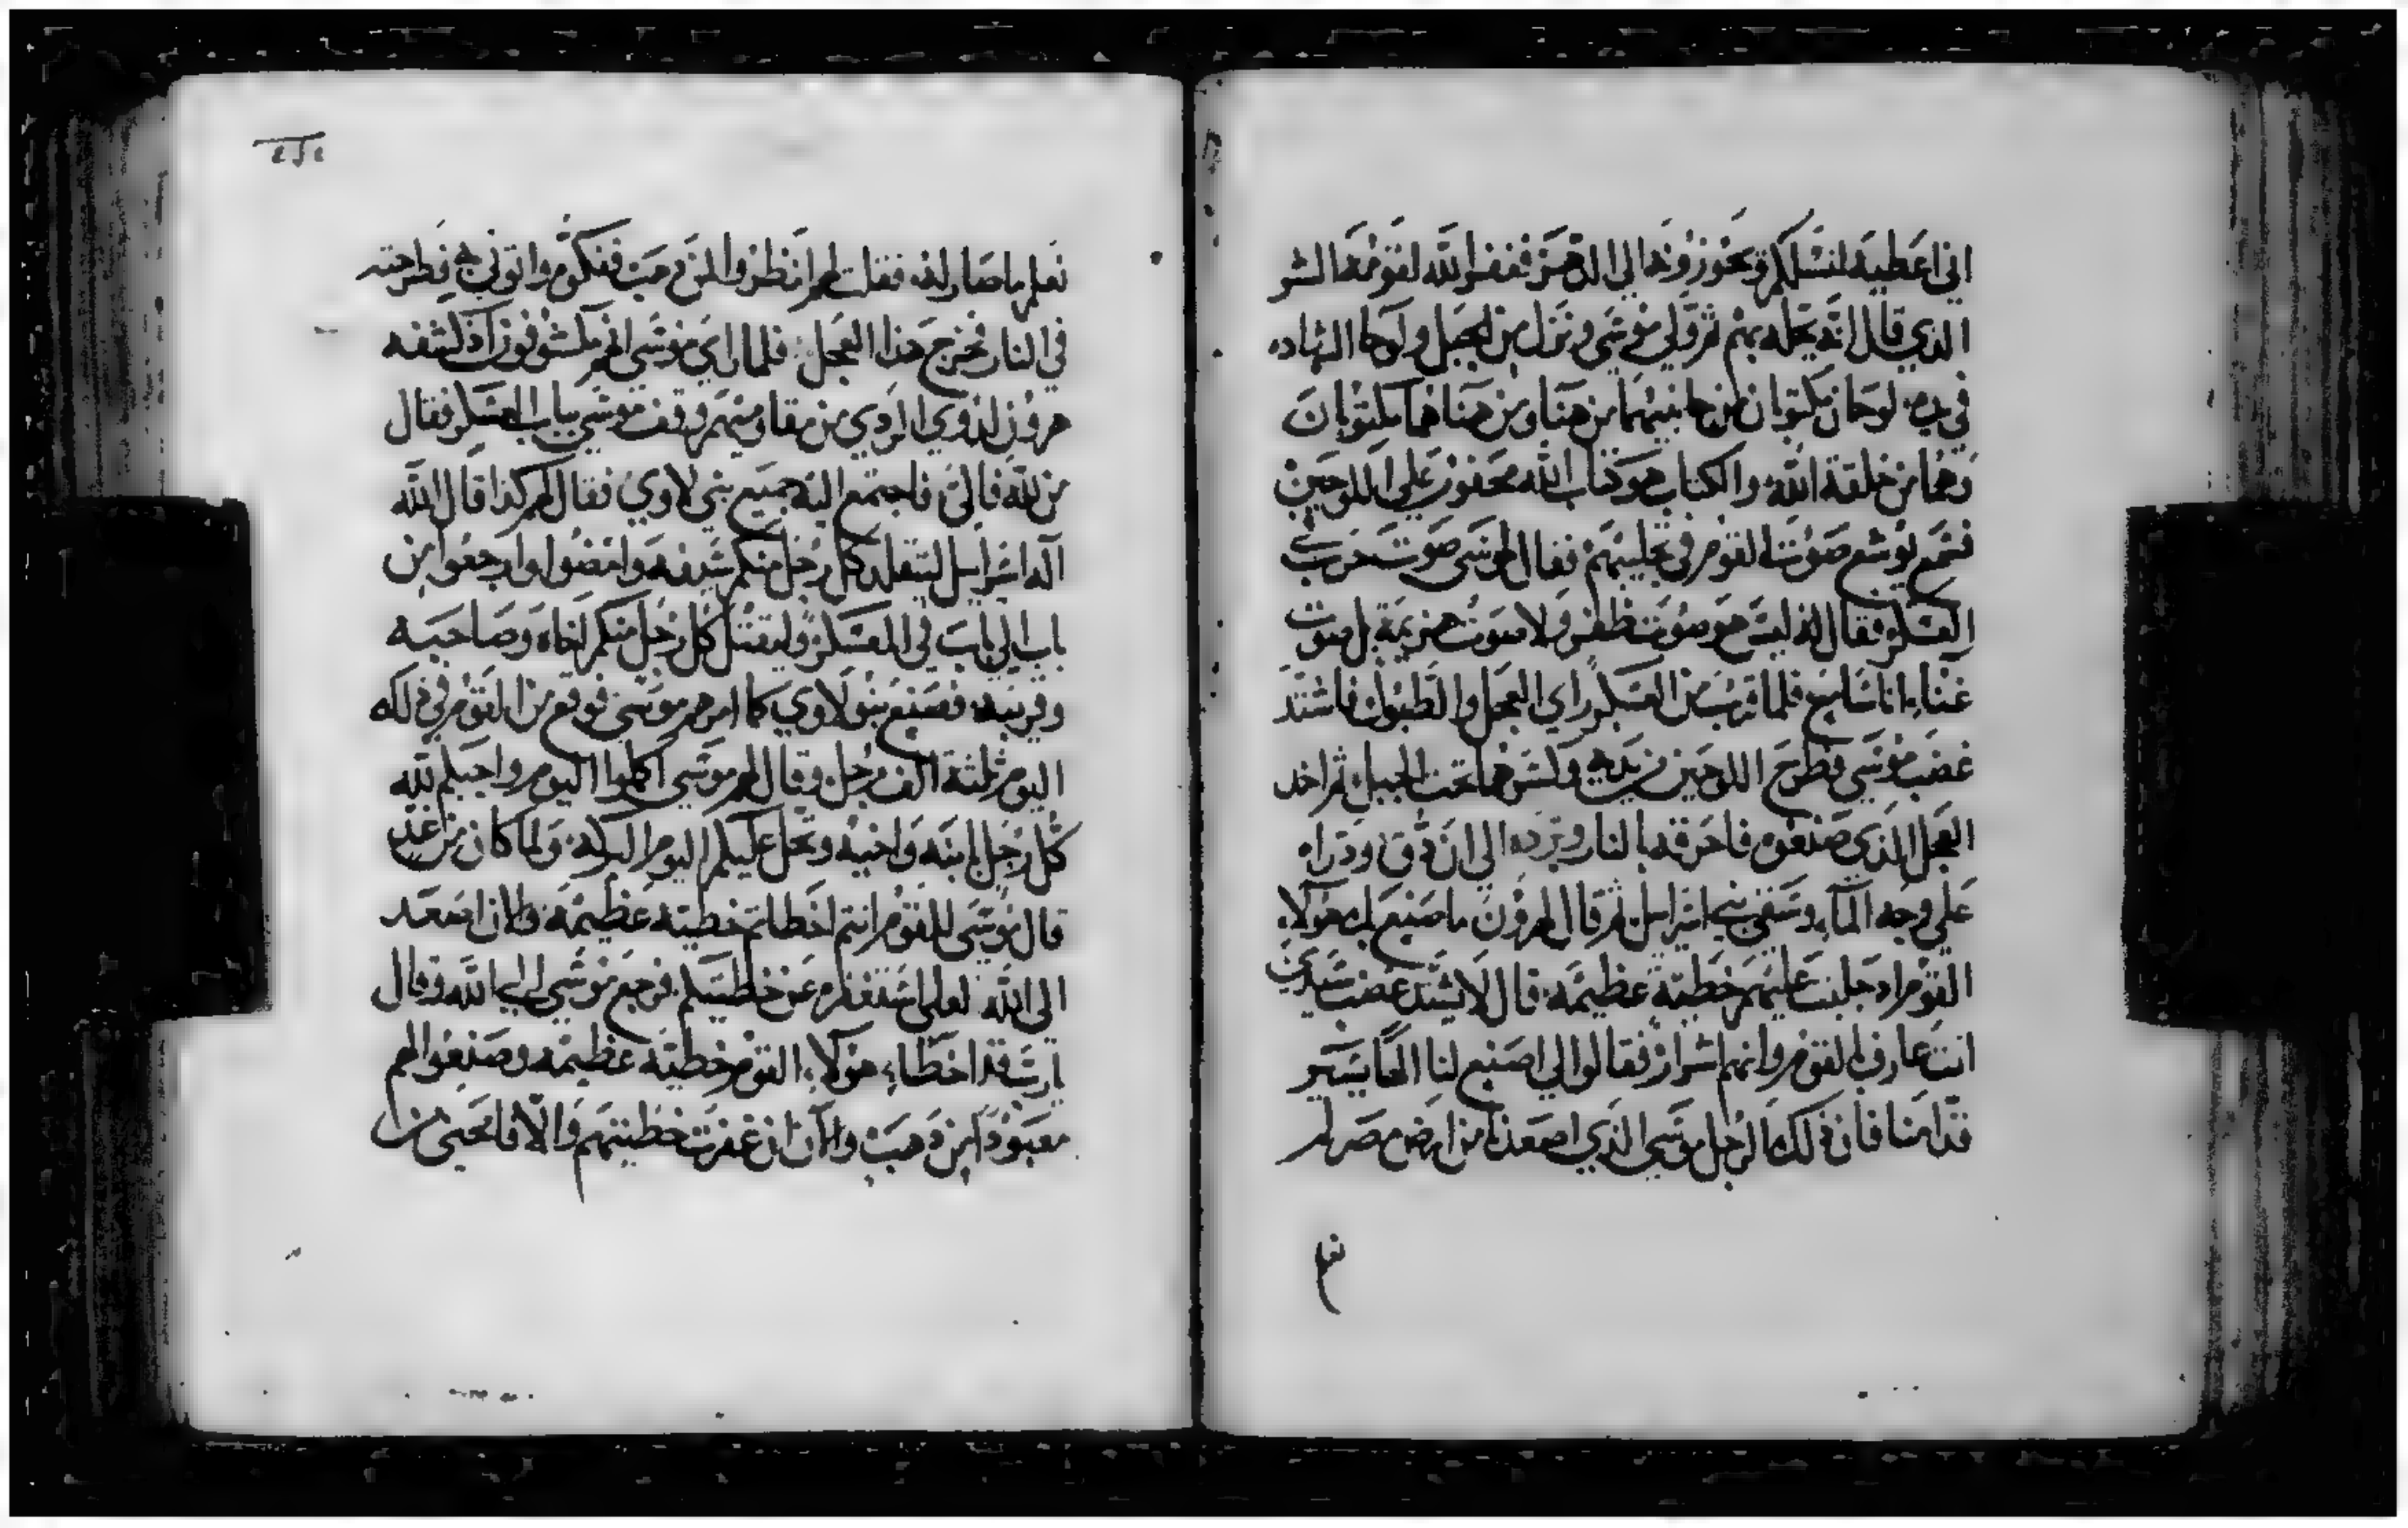 اني اعطيه لنسلكم وتحوزونها الي الدهر فغفر الله لقومه الشر
الذي قال انه يحله بهم ثم ولي موسي ونزل من الجبل ولوحا الشهاده
في يده لوحان مكتوبان من جانبيهما من هنا ومن هنا هما مكتوبان
وهما من خلقة الله والكتاب هو كتاب الله محفور علي اللوحين
فسمع يوشع صوت القوم في تجلبيهم فقال لموسي صوت حرب في
العسكر فقال له ليس هو صوت ظفر ولا صوت هزيمة بل صوت
غناء انا سامع فلما قرب من العسكر راي العجل والطبول فاشتد
غضب موسي فطرح اللوحين من يديه وكسرهما تحت الجبل ثم اخد
العجل الذي صنعوه فاحرقه بالنار وبرده الي ان دق ودراه
علي وجه الماء وسقي بني اسراسل ثم قال لهرون ما صنع بك هولاء
القوم اد جلبت عليهم خطية عظيمه قال لا يشتد غضب سيدي
انت عارف القوم وانهم اشرار فقالوا لي اصنع لنا الها يسير
قدامنا فان ذلك الرجل موسي الذي اصعدنا من ارض مصر لم
نعلم
نعلم ما صار له فقلت لهم انظروا لمن دهب ففكوه واتوني به فطرحته
في النار فخرج هذا العجل فلما راي موسي انهم مكشوفون اذ كشفهم
هرون لذوي الردي من مقاوميهم وقف موسي بباب العسكر فقال
من لله فالي فاجتمع اليه جميع بني لاوي فقال لهم كذا قال الله
اله اسراسل ليتقلد كل رجل منكم سيفه وامضوا وارجعوا من
باب الي باب في المعسكر وليقتل كل رجل منكم اخاه وصاحبه
وقريبه فصنع بنو لاوي كما امرهم موسي فوقع من القوم في ذلك
اليوم ثلثة الف رجل وقال لهم موسي اكملوا اليوم واجبكم لله
كل رجل بابنه واخيه وتحل عليكم اليوم البركه ولما كان من غد
قال موسي للقوم انتم اخطاتم خطية عظيمه والان اصعد
الي الله لعلي استغفره عن خطيتكم فرجع موسي الي الله وقال
يا رب قد اخطاء هولاء القوم خطية عظيمه وصنعوا لهم
معبودا من دهب والان ان غفرت خطيتهم والا فامحني من